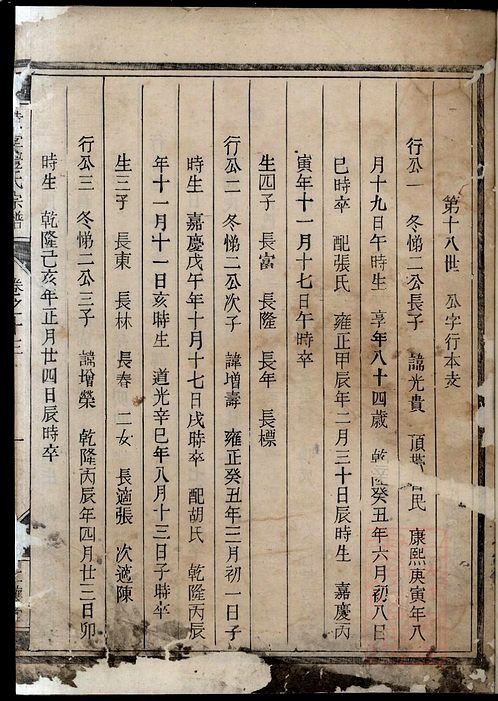 第十八世 公字行本支
行公一 冬悌二公長子 諱光貴 頂帶 民 康熙庚寅年八
月十九日午時生 享年八十四歲 乾隆癸丑年六月初八日
巳時卒 配張氏 雍正甲辰年二月三十日辰時生 嘉慶丙
寅年十一月十七日午時卒
生四子 長富 長隆 長年 長標
行公二 冬悌二公次子 諱增壽 雍正癸丑年三月初一日子
時生 嘉慶戊午年十月十七日戌時卒 配胡氏 乾隆丙辰
年十一月十一日亥時生 道光辛巳年八月十三日子時卒
生三子 長東 長林 長春 二女 長適張 次適陳
行公三 冬悌二公三子 諱增榮 乾隆丙辰年四月廿三日卯
時生 乾隆己亥年正月廿四日辰時卒
氏宗譜 卷之十三